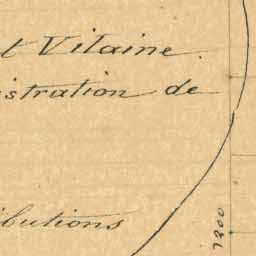 t Vilaine.
istration de
ibutions
7200